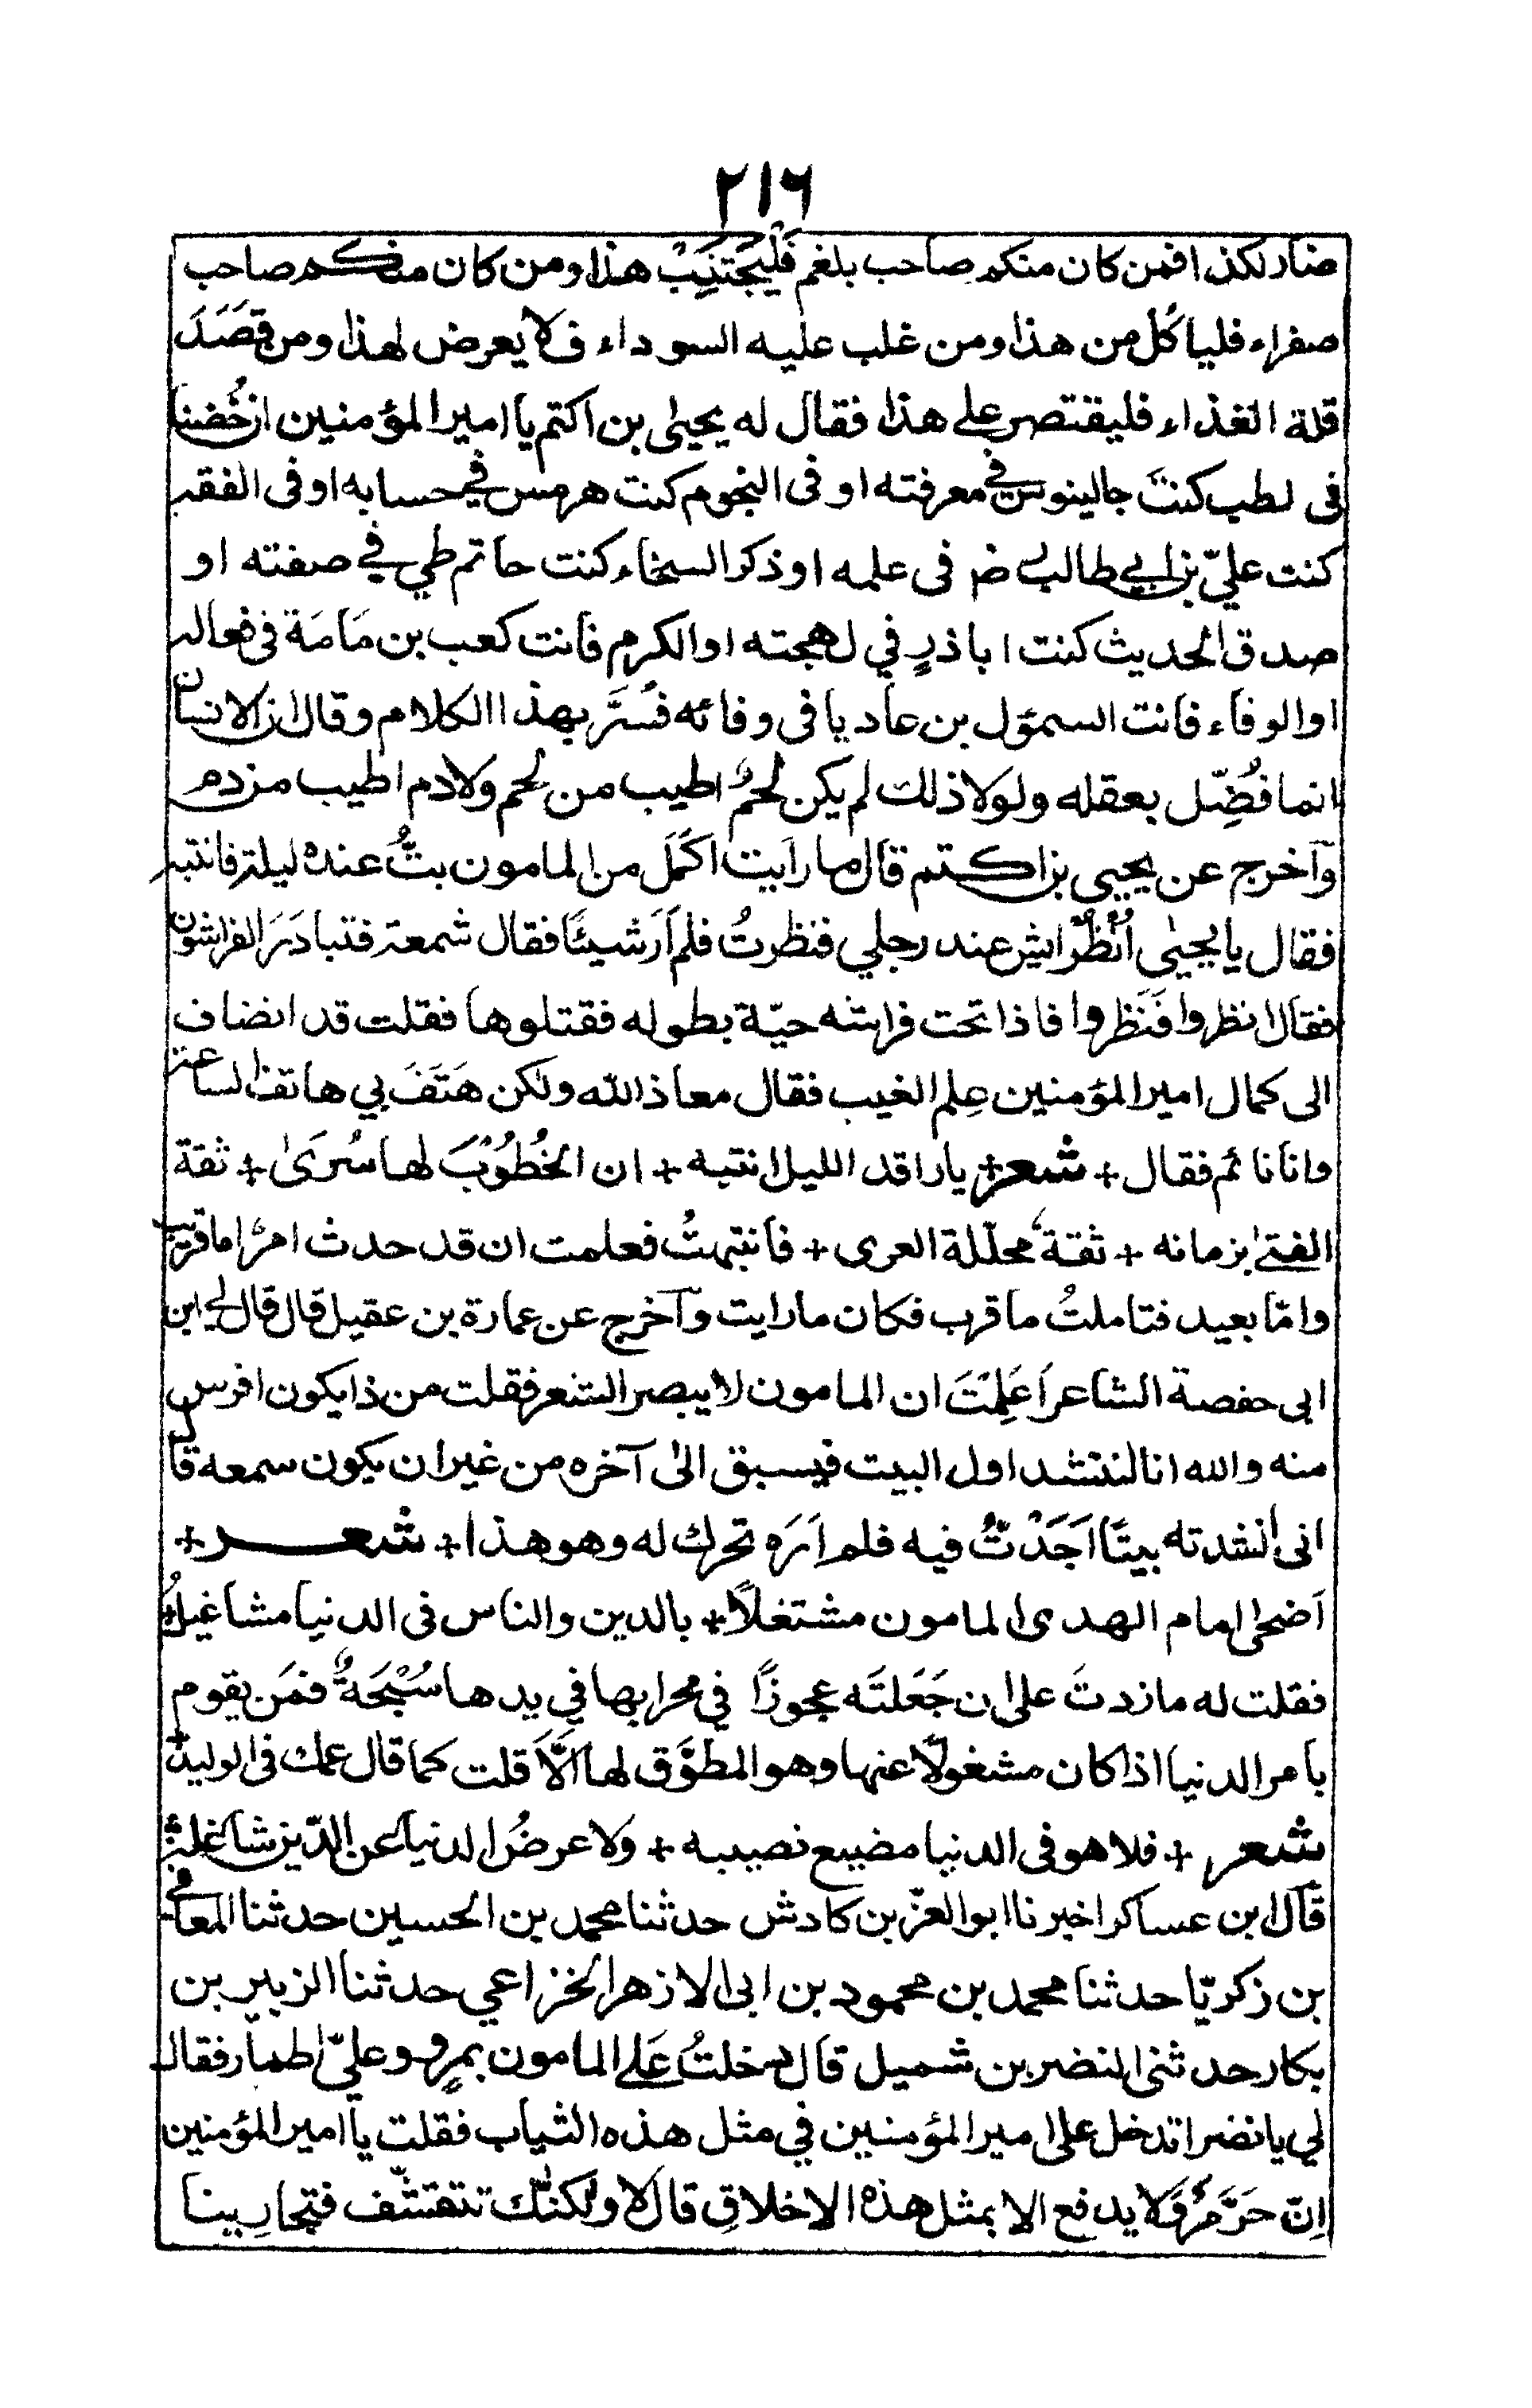 ٢١٦
ضار لكذا فمن كان منكم صاحب بلغم فَلْيَجْتَنِبْ هذا ومن كان منكم صاحب
صفراء فلياكُل من هذا ومن غلب عليه السوداء فلا يعرض لهذا ومن قَصَدَ
قلة الغذاء فليقتصر على هذا فقال له يحيىٰ بن اكتم يا امير المؤمنين ان خُضنا
فى لطب كنتَ جالينوس في معرفته او فى النجوم كنت هرمس في حسابه او فى الفقه
كنت عليّ بن ابي طالب رض فى علمه او ذكر السخاء كنت حاتم طي في صفته او
صدق الحديث كنت ا باذرٍ في لهجته او الكرم فانت كعب بن مَامَة فى فعاله
او الوفاء فانت السمؤل بن عاديا فى وفائه فسُرَّ بهذا الكلام وقال ان الانسان
انما فُضِّل بعقله ولولا ذلك لم يكن لحمٌ اطيب من لحم ولا دم اطيب من دم
وآخرج عن يحيي بن اكتم قال ما رايت اكمَلَ من المامون بتُّ عنده ليلة فانتبه
فقال يا يحيىٰ اُنْظُرْ ايش عند رجلي فنظرتُ فلم اَرَ شيئًا فقال شمعة فتبادَرَ الفراشون
فقال انظروا فَنَظروا فاذا تحت فراشه حيّة بطوله فقتلوها فقلت قد انضاف
الى كمال امير المؤمنين عِلم الغيب فقال معاذ الله ولكن هَتَفَ بي هاتف الساعة
وانا نائم فقال + شعر + يا راقد الليل انتبه + ان الخُطُوْبَ لها سُرَىٰ + ثقة
الفتىٰ بزمانه + ثقةٌ محلّلة العرى + فانتبهتُ فعلمت ان قد حدث امرٌ اما قريب
وامّا بعيد فتاملتُ ما قرب فكان ما رايت وآخرج عن عمارة بن عقيل قال قال لي ابن
ابى حفصة الشاعر اَعَلِمْتَ ان المامون لا يبصر الشعر فقلت من ذا يكون افرس
منه والله انا لننشد اول البيت فيسبق الىٰ آخره من غير ان يكون سمعه قال
انى انشدته بيتًا اَجَدْتُ فيه فلم اَرَه تحرك له وهو هذا + شعر +
اَضحى امام الهدى المامون مشتغلاً + بالدين والناس فى الدنيا مشاغيلُ +
فقلت له ما زدتَ على ان جَعَلتَه عجوزًا في محرابها في يدها سُبْحَةٌ فمَن يقوم
بامر الدنيا اذا كان مشغولًا عنها وهو المطوَّق لها اَلَّا قلت كما قال عمك فى الوليد +
شعر + فلا هو فى الدنيا مضيع نصيبه + ولا عرضُ الدنيا عن الدّين شاغله +
قآل ابن عساكر اخبرنا ابو العزّ بن كادش حدثنا محمد بن الحسين حدثنا المعافى
بن زكريّا حدثنا محمد بن محمود بن ابى الازهر الخزاعي حدثنا الزبير بن
بكار حدثنى النضر بن شميل قال دخلتُ عَلى المامون بمروٍ وعليّ اطمار فقال
لي يا نضر اتدخل على امير المؤمنين في مثل هذه الثياب فقلت يا امير المؤمنين
اِنّ حَرَّ مَرْوَ لا يدفع الا بمثل هذه الاخلاقِ قال لا ولكنّك تتقشّف فتجارينا